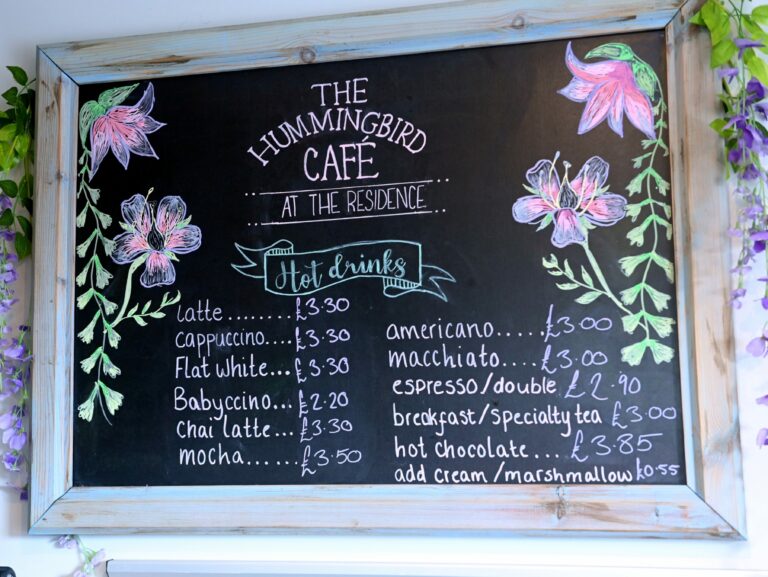 THE
HUMMINGBIRD
CAFÉ
AT THE RESIDENCE
Hot drinks
latte........£3.30
cappuccino....£3.30
Flat white...£3.30
Babyccino...£2.20
Chai latte...£3.30
mocha......£3.50
americano.....£3.00
macchiato....£3.00
espresso/double £2.90
breakfast/specialty tea £3.00
hot chocolate....£3.85
add cream/marshmallow £0.55